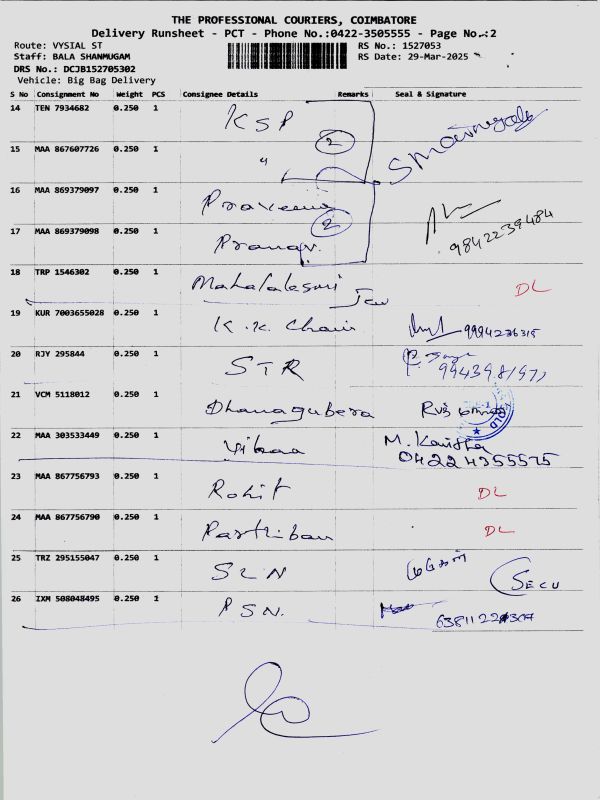 THE PROFESSIONAL COURIERS, COIMBATORE
Delivery Runsheet - PCT - Phone No.:0422-3505555 - Page No.:2
Route: VYSIAL ST RS No.: 1527053
Staff: BALA SHANMUGAM RS Date: 29-Mar-2025
DRS No.: DCJB152705302
Vehicle: Big Bag Delivery
S No Consignment No Weight PCS Consignee Details Remarks Seal & Signature
14 TEN 7934682 0.250 1 KSP
15 MAA 867607726 0.250 1 " 2
16 MAA 869379097 0.250 1 Praveena
17 MAA 869379098 0.250 1 Pranav. 2 9842239484
18 TRP 1546302 0.250 1 Mahalalesmi Jew DL
19 KUR 7003655028 0.250 1 K.K. Chair 9994236315
20 RJY 295844 0.250 1 STR
21 VCM 5118012 0.250 1 Dhanagubera
22 MAA 303533449 0.250 1 M. Kavitha
0422 4355575
23 MAA 867756793 0.250 1 Rohit DL
24 MAA 867756790 0.250 1 Parthiban DL
25 TRZ 295155047 0.250 1 SLN SECU
26 IXM 508048495 0.250 1 PSN.